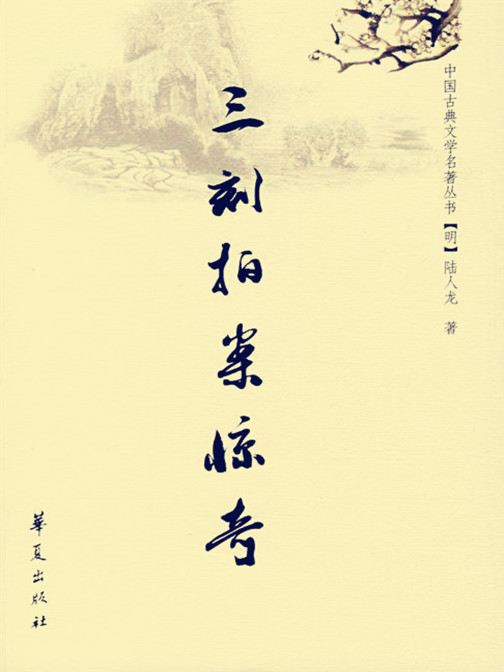 中国古典文学名著丛书【明】陆人龙 著
三刻拍案惊奇
華夏出版社